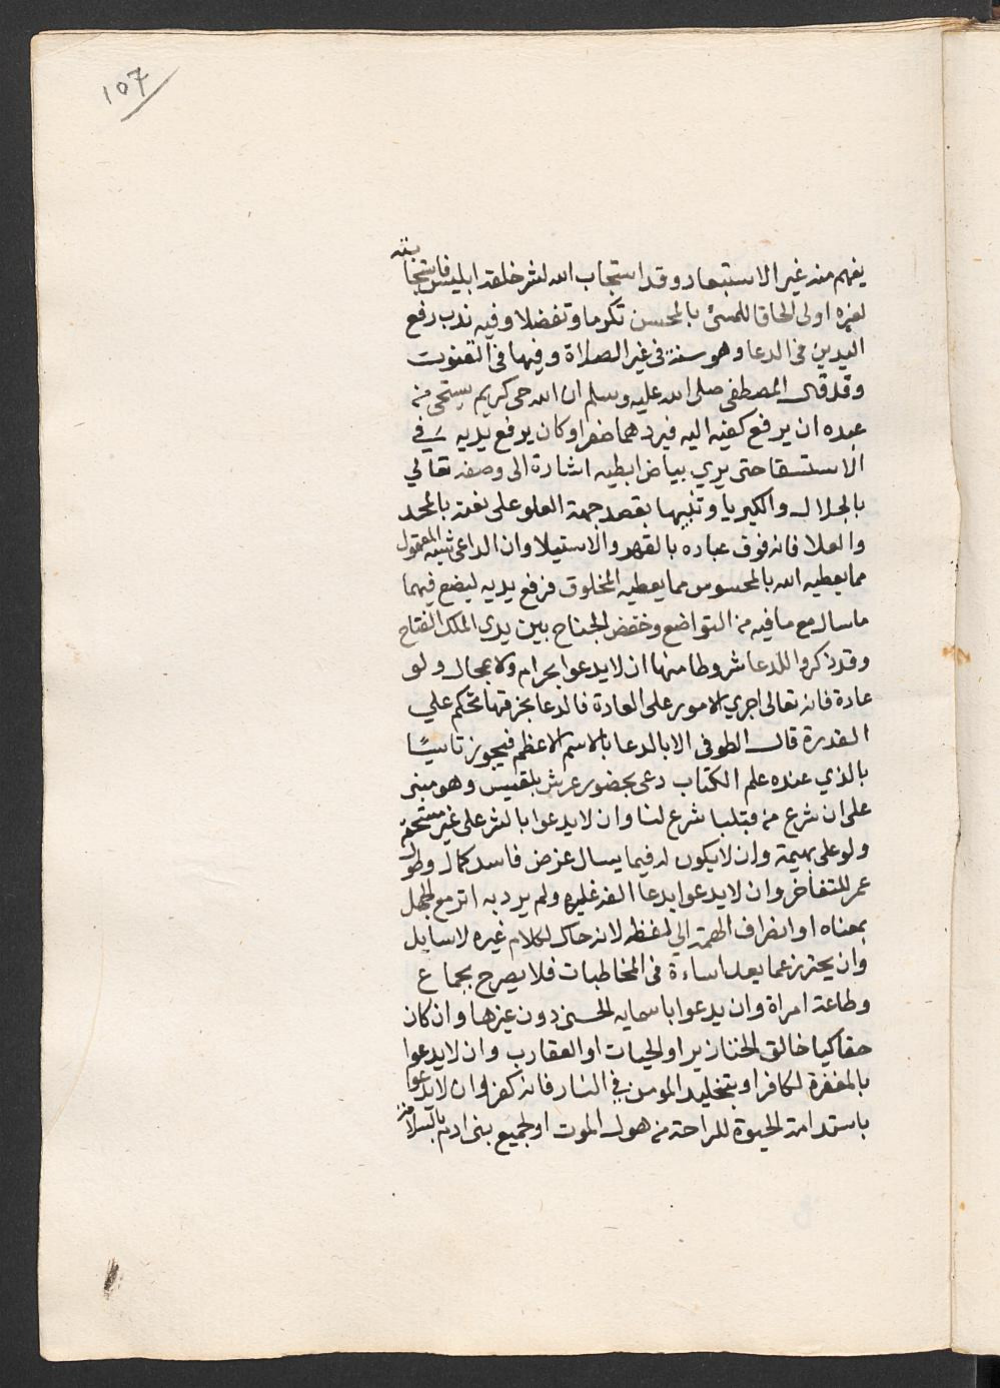 107
يفهم منه غير الاستبعاد وقد استجاب الله لشر خلقه ابليس فاستجابته
لغيره اولى الحاقا للمسئ بالمحسن تكرما وتفضلا وفيه ندب رفع
اليدين فى الدعا وهو سنة فى غير الصلاة وفيها فى القنوت
وقد قال المصطفى صلى الله عليه وسلم ان الله حى كريم يستحى من
عبده ان يرفع كفيه اليه فيردهما صفرا وكان يرفع يديه في
الاستسقا حتى يري بياض ابطيه اشارة الى وصفه تعالي
بالجلال والكبريا وتنبيها بقصد جهة العلو على نعته بالمجد
والعلا فانه فوق عباده بالقهر والاستيلا وان الداعى شبه المعقول
مما يعطيه الله بالمحسوس مما يعطيه المخلوق فرفع يديه ليضع فيهما
ما سال مع ما فيه من التواضع وخفض الجناح بين يدى الملك الفتاح
وقد ذكروا للدعا شروطا منها ان لا يدعوا بحرام ولا بمحال ولو
عادة فانه تعالى اجري الامور على العادة فالدعا بخرقها تحكم علي
القدرة قال الطوفى الا بالدعا بالاسم الاعظم فيجوز تاسيًا
بالذي عنده علم الكتاب دعى بحضور عرش بلقيس وهو مبنى
على ان شرع من قبلنا شرع لنا وان لا يدعوا بالشر على غير مستحق
ولو على بهيمة وان لا يكون له فيما يسال غرض فاسد كمال وطول
عمر للتفاخر وان لا يدعوا بدعا الفه غيره ولم يرد به اثر مع الجهل
بمعناه او انصراف الهمة الي لفظه لانه حاك لكلام غيره لا سايل
وان يحترز عما يعد اساءة فى المخاطبات فلا يصرح بجماع
وطاعة امراة وان يدعوا باسمايه الحسنى دون غيرها وان كان
حقا كيا خالق الخنازير او الحيات او العقارب وان لا يدعوا
بالمغفرة لكافر او بتخليد المومن في النار فانه كفر وان لا يدعوا
باستدامة الحيوة للراحة من هول الموت او لجميع بنى ادم بالسلامة